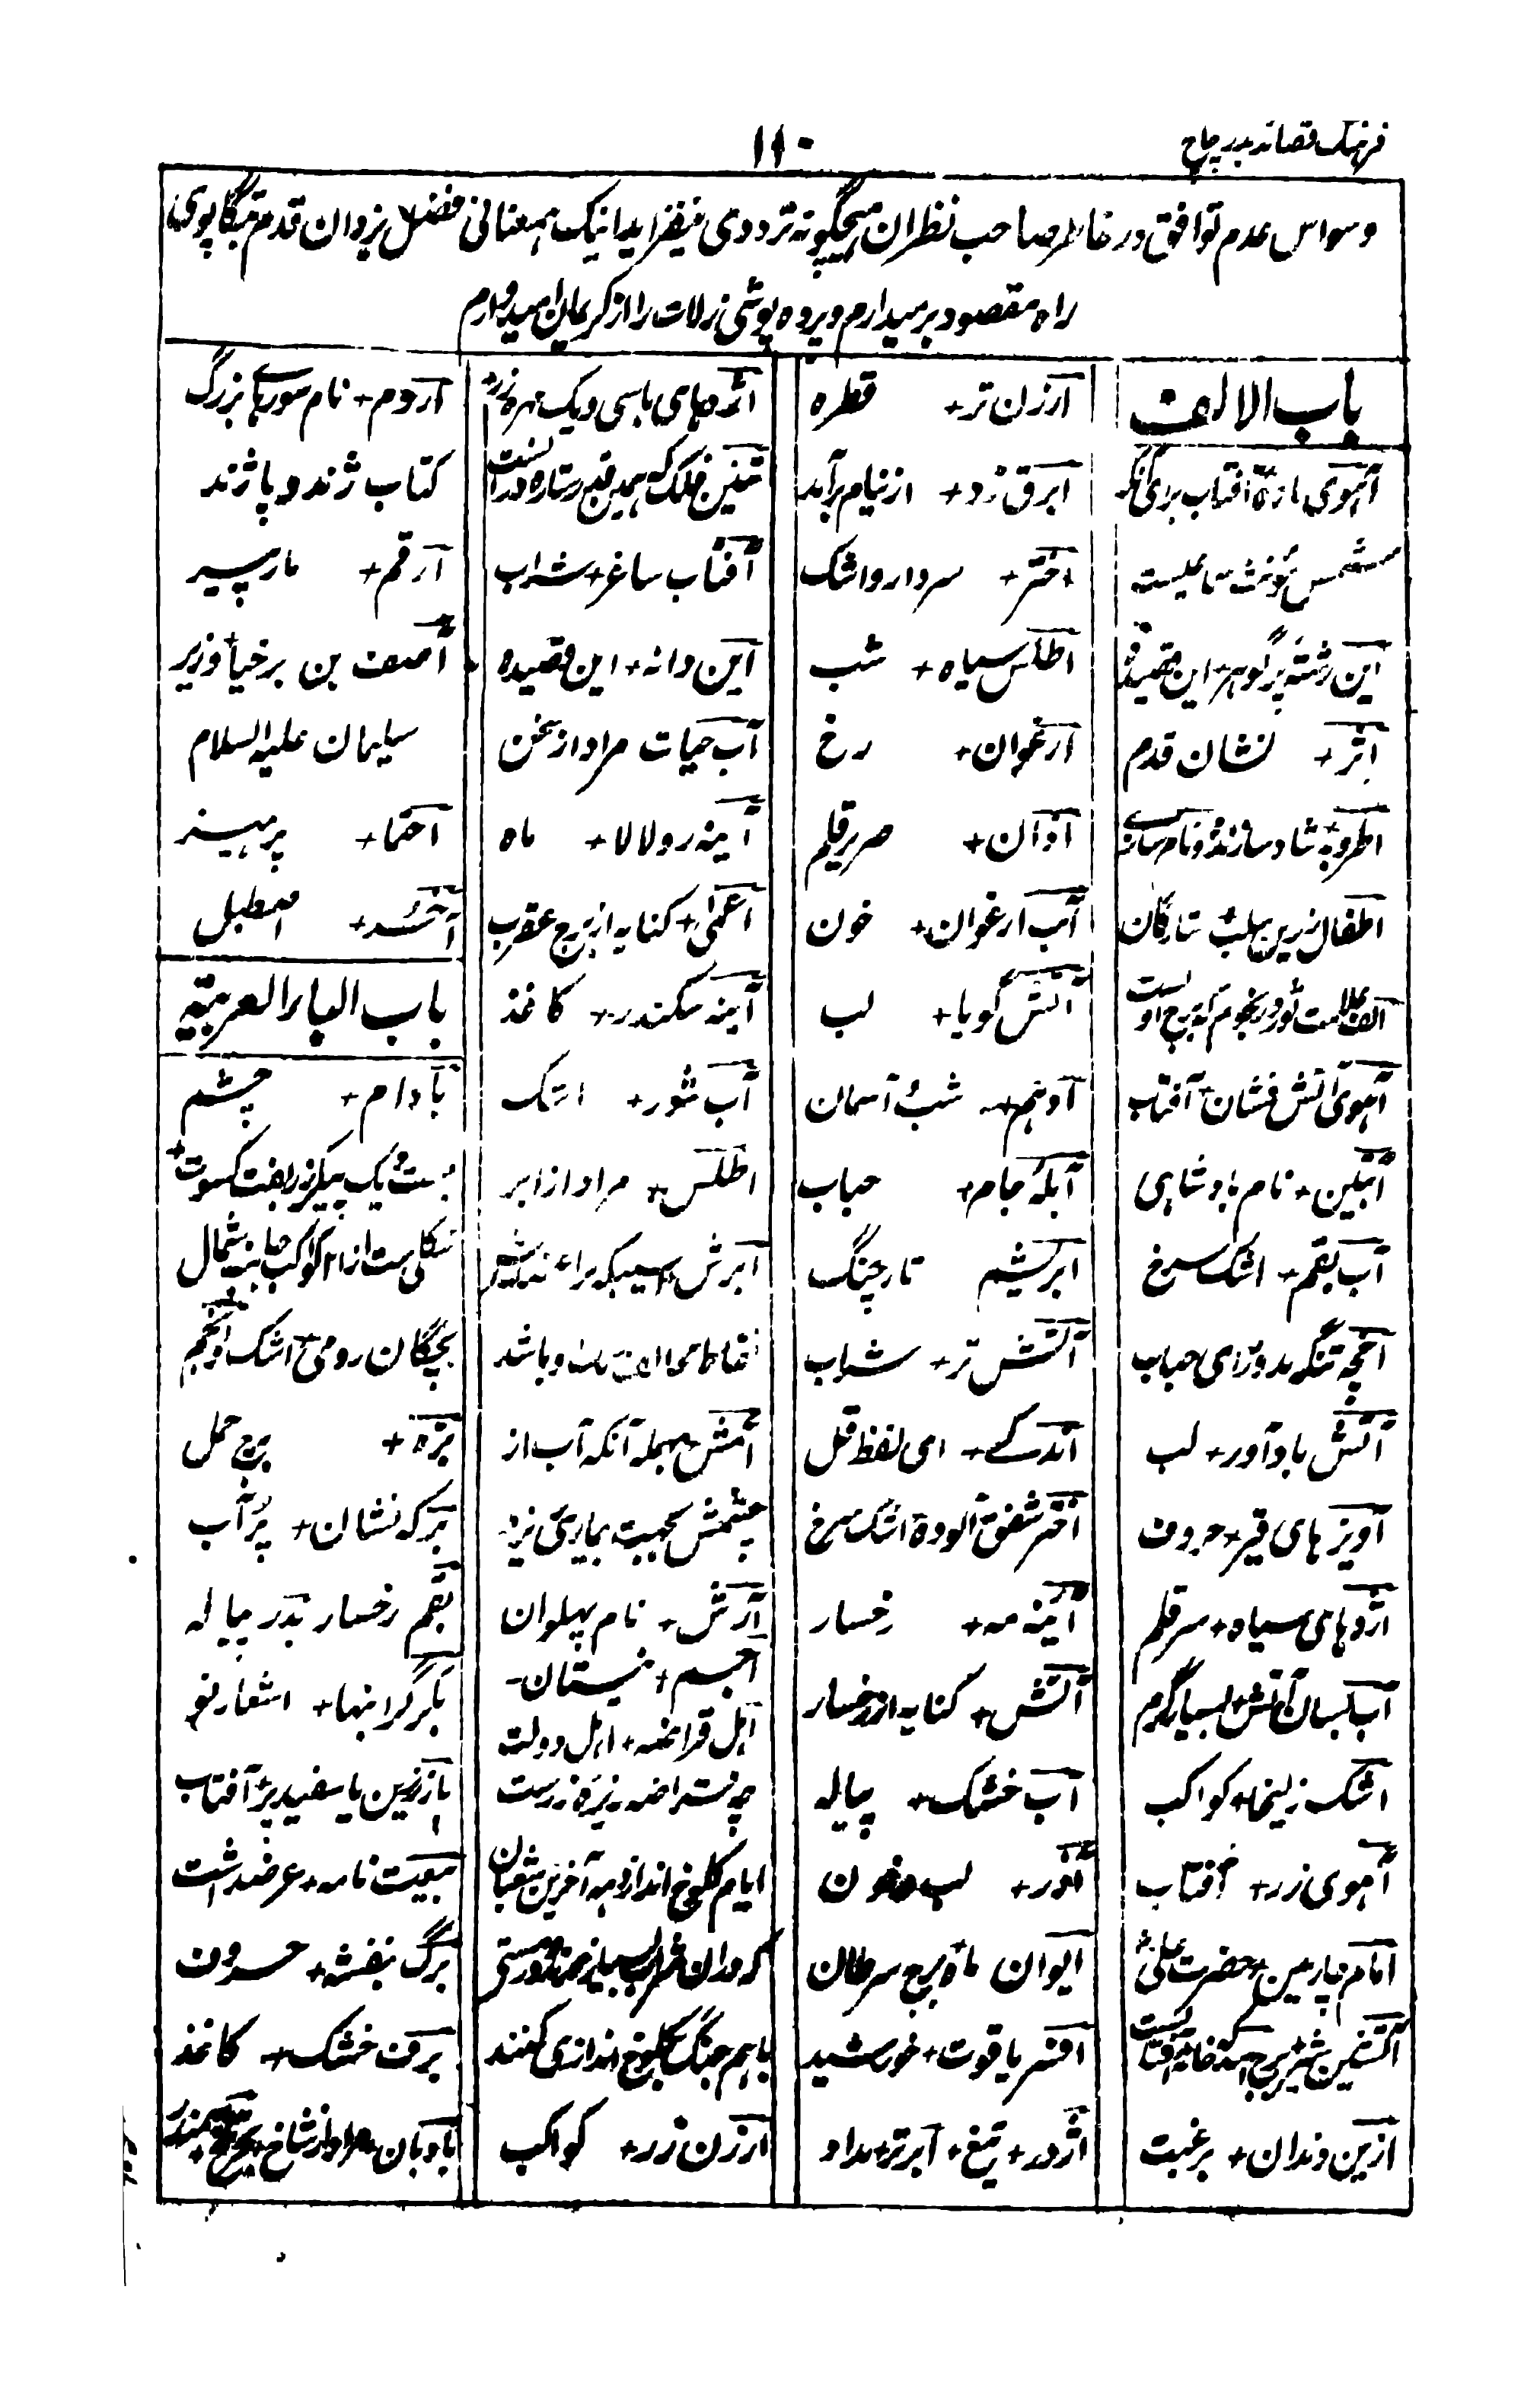 فرهنگ قصائد بدر چاچ
۱۱۰
وسواس عدم توافق در خاطر صاحب نظران هیچگونه ترددی نیفزاید اینک بهمعنانی فضل یزدان قدم بتگاپوی
راه مقصود بر میدارم و پرده پوشی زلات را از کریمان امیدوارم
باب الالف
آهوی ماده + آفتاب برای آنکه
شمس مؤنث سماعیست
این رشته پر گوهر + این قصیده
اثر + نشان قدم
اطفال زرین سلب + ستارگان
آهوی آتش فشان + آفتاب
آبتین + نام بادشاهی
آب بقم + اشک سرخ
آتش بادآور + لب
آویزهای قیر + حروف
اژدهای سیاه + سر قلم
آب بسان آتش + بسیار گرم
اشک زلیخا + کواکب
آهوی زر + آفتاب
امام چارمین + حضرت علی
ازین دندان + برغبت
ارزن تر + قطره
ابرق زد + از نیام برآید
اختر + سردار و اشک
اطلس سیاه + شب
ارغوان + رخ
اذان + صریر قلم
آب ارغوان + خون
آتش گویا + لب
ادهم + شب و آسمان
آبله جام + حباب
ابریشم تار چنگ
آتش تر + شراب
اندکے + ای لفظ قل
اختر شفق آلوده + اشک سرخ
آئینه مه + رخسار
آتش + کنایه از رخسار
آب خشک + پیاله
آذر + لب و خون
ایوان ماه + برج سرطان
افسر یاقوت + خورشید
اژدر + تیغ + ابر تر + مداد
اژدهای با سی و یک مهره زر +
آفتاب ساغر + شراب
این دانه + این قصیده
آب حیات مراد از سخن
آینه رو لالا + ماه
اعمی + کنایه از برج عقرب
آینه سکندر + کاغذ
آب شور + اشک
اطلس + مراد از ابر
ابرش + اسپیکه براعضایش
نقاط مخالف لون او باشد
اعمش بمهمله آنکه آب از
چشمش بجهت بیماری ریزد
آرش + نام پهلوان
اجم + نیستان -
اهل قراضه + اهل دولت
چه قراضه ریزه زرست
ایام کلوخ انداز + ماه آخرین شعبان
که دران شراب بسیار خورند و در مستی
باهم جنگ کلوخ اندازی کنند
ارزن زر + کواکب
اردم + نام سوره‌ای بزرگ
کتاب ژند و پاژند
ارقم + مار پیسه
آصف بن برخیا + وزیر
سلیمان علیه السلام
احتما + پرهیز
آخر + اصطبل
باب الباء العربیة
بادام + چشم
بیست و یک پیکر زربفت کسوت +
شکلی است از ۲۱ کواکب جانب شمال
بچگان رومی + اشک و انجم
بره + برج حمل
برکه نشان + پر آب
بقم رخسار بدر پیاله
بکر گرانبها + اشعار نو
باز زرین یا سفید پر + آفتاب
بیعت نامه + عرضداشت
برگ بنفشه + حروف
برف خشک + کاغذ